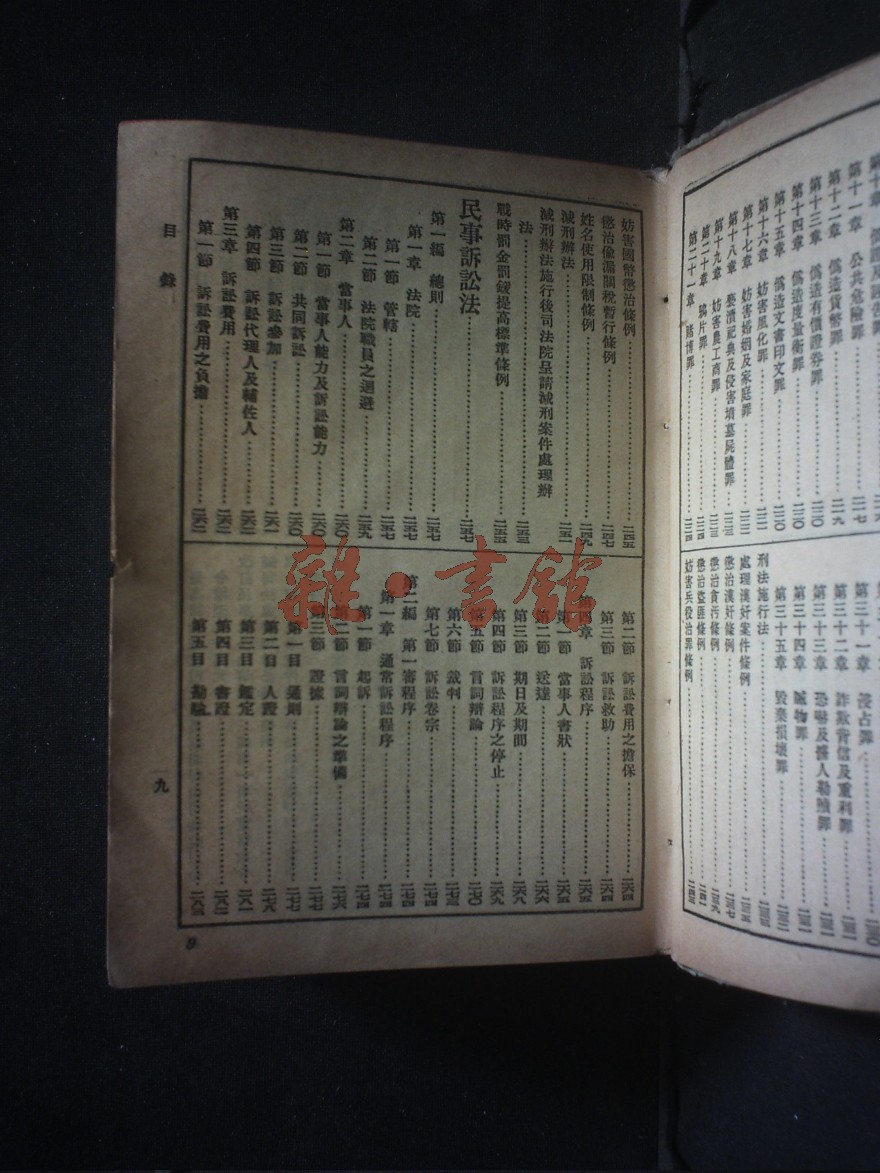 第十一章 公共危險罪
第十二章 僞造貨幣罪
第十三章 僞造有價證券罪
第十四章 僞造度量衡罪
第十五章 僞造文書印文罪
第十六章 妨害風化罪
第十七章 妨害婚姻及家庭罪
第十八章 褻瀆祀典及侵害墳墓屍體罪
第十九章 妨害農工商罪
第二十章 鴉片罪
第二十一章 賭博罪
第三十一章 侵占罪
第三十二章 詐欺背信及重利罪
第三十三章 恐嚇及擄人勒贖罪
第三十四章 贓物罪
第三十五章 毀棄損壞罪
刑法施行法
處理漢奸案件條例
懲治漢奸條例
懲治貪污條例
懲治盜匪條例
妨害兵役治罪條例
妨害國幣懲治條例……二四五
懲治偸漏關稅暫行條例……二四七
姓名使用限制條例……二四九
減刑辦法……二五一
減刑辦法施行後司法院呈請減刑案件處理辦
法……二五三
戰時罰金罰鍰提高標準條例……二五五
民事訴訟法……二五七
第一編 總則……二五七
第一章 法院……二五七
第一節 管轄……二五七
第二節 法院職員之迴避……二五九
第二章 當事人……二六〇
第一節 當事人能力及訴訟能力……二六〇
第二節 共同訴訟……二六〇
第三節 訴訟參加……二六一
第四節 訴訟代理人及輔佐人……二六一
第三章 訴訟費用……二六二
第一節 訴訟費用之負擔……二六二
第二節 訴訟費用之擔保……二六四
第三節 訴訟救助……二六四
第四章 訴訟程序……二六五
第一節 當事人書狀……二六五
第二節 送達……二六六
第三節 期日及期間……二六八
第四節 訴訟程序之停止……二六九
第五節 言詞辯論……二七〇
第六節 裁判……二七三
第七節 訴訟卷宗……二七四
第二編 第一審程序……二七四
第一章 通常訴訟程序……二七四
第一節 起訴……二七四
第二節 言詞辯論之準備……二七六
第三節 證據……二七七
第一目 通則……二七七
第二目 人證……二七八
第三目 鑑定……二八一
第四目 書證……二八二
第五目 勘驗……二八三
目錄
九
9
雜·書館